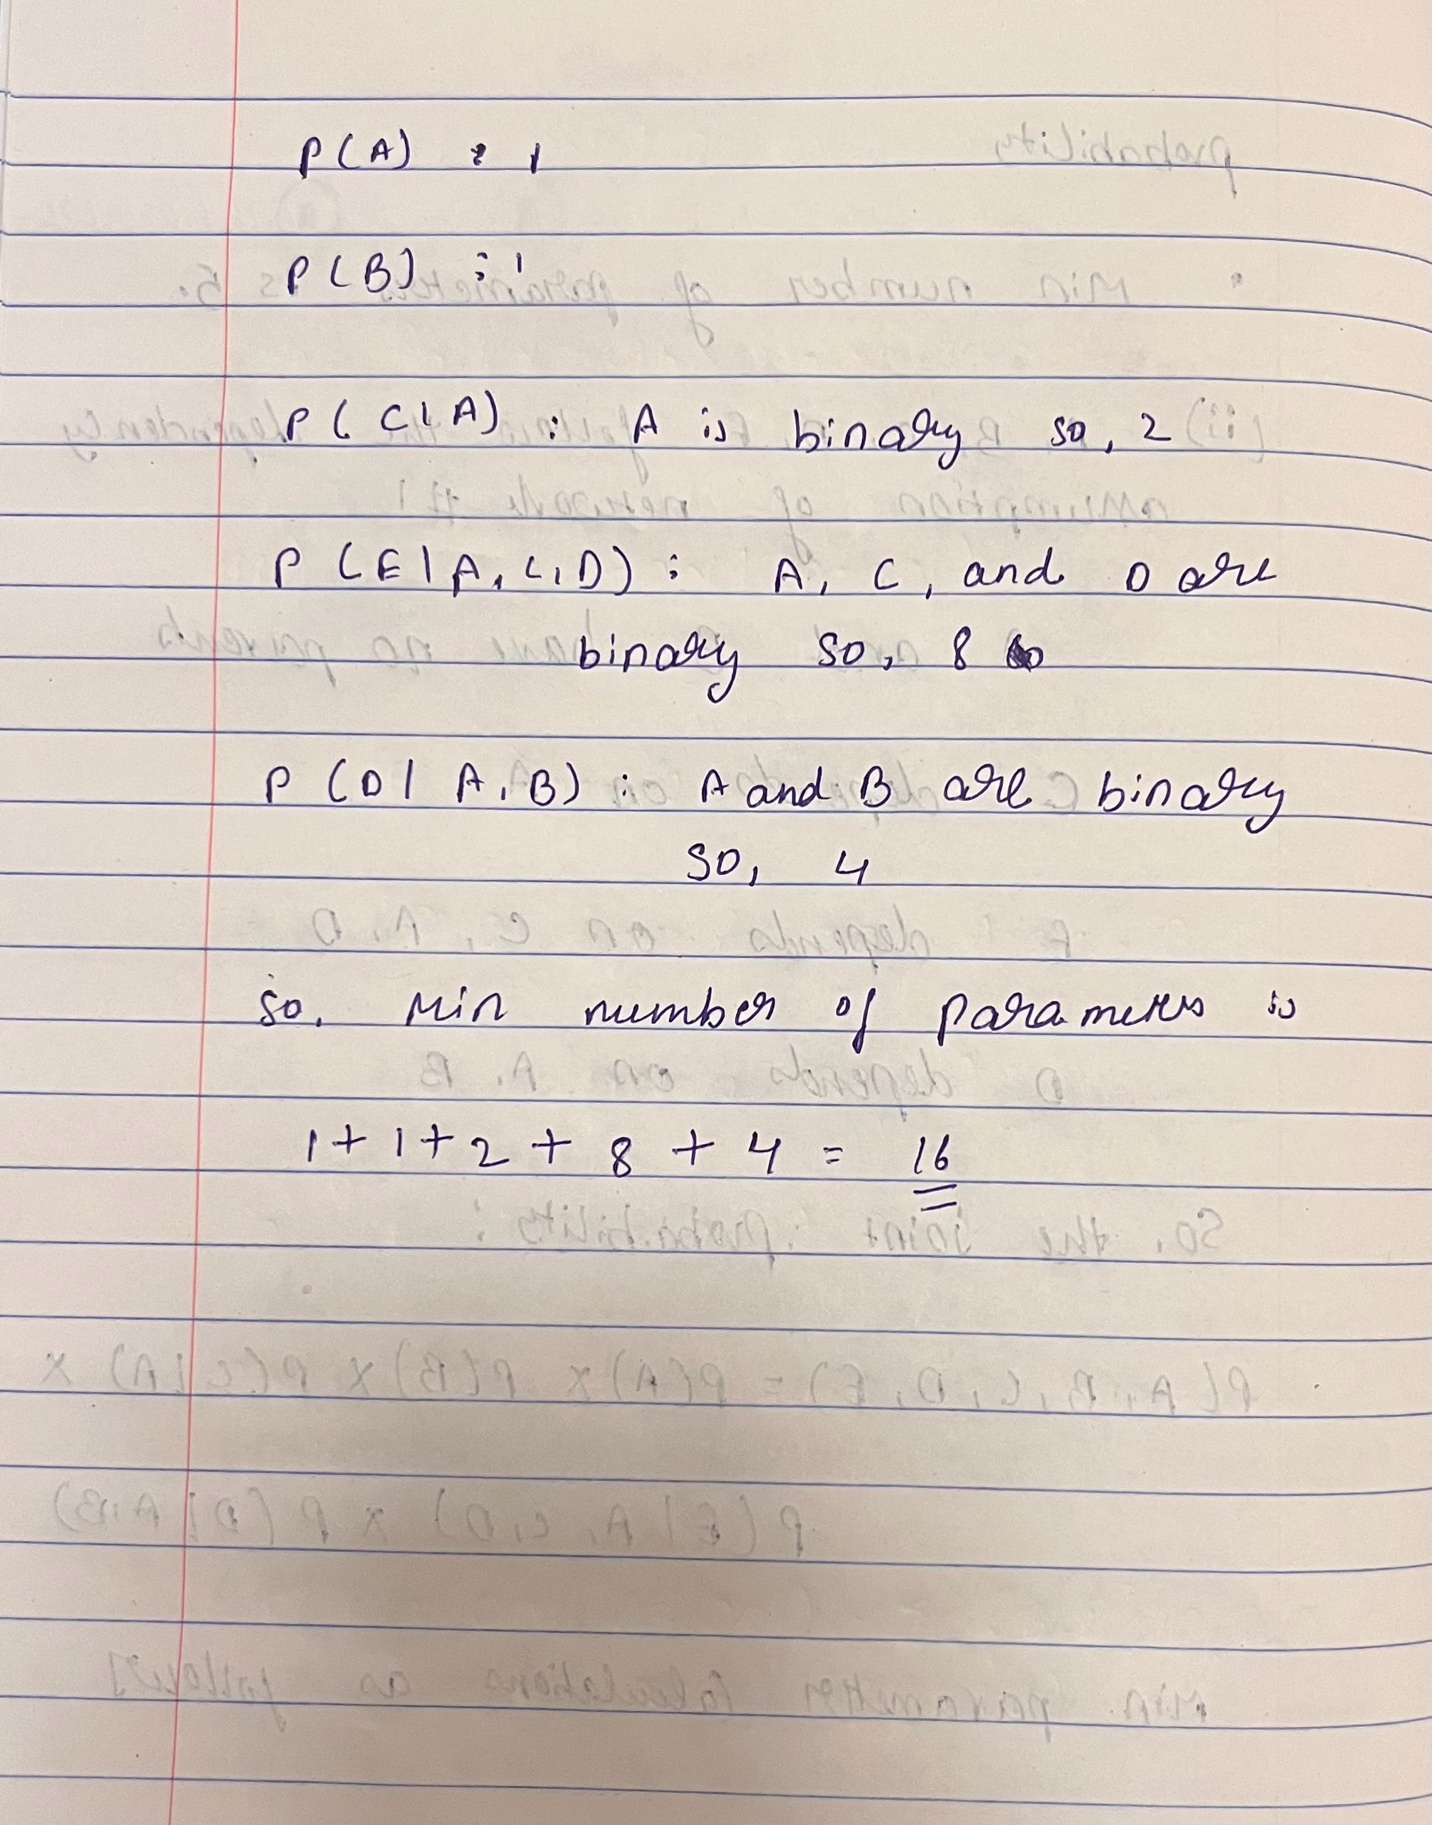 P(A) : 1
P(B) : 1
P(C|A) : A is binary so, 2
P(E|A,C,D) : A, C, and D are
binary so, 8
P(D|A,B) : A and B are binary
so, 4
so, Min number of parameters is
1+1+2+8+4 = 16